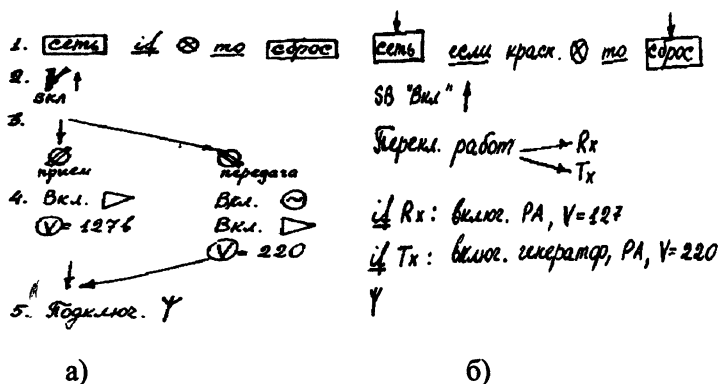 1. сеть if ⊗ то сброс
2. ВКЛ ↑
3.
прием передача
4. Вкл. ▷ Вкл.
Ⓥ= 127в Вкл. ▷
Ⓥ= 220
5. Подключ.
а)
сеть если красн. ⊗ то сброс
SB "Вкл" ↑
Перекл. работ → Rx
→ Tx
if Rx: включ. PA, V=127
if Tx: включ. генератор, PA, V=220
б)